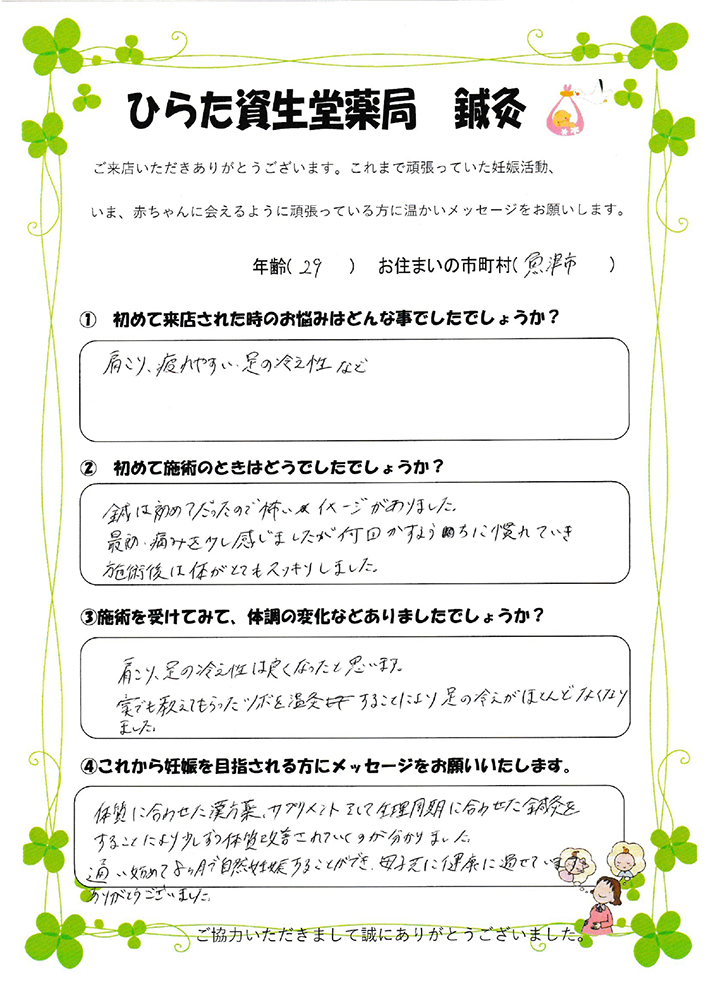 ひらた資生堂薬局　鍼灸
ご来店いただきありがとうございます。これまで頑張っていた妊娠活動、
いま、赤ちゃんに会えるように頑張っている方に温かいメッセージをお願いします。
年齢( 29 )　お住まいの市町村( 魚津市 )
①　初めて来店された時のお悩みはどんな事でしたでしょうか？
肩こり、疲れやすい、足の冷え性 など
②　初めて施術のときはどうでしたでしょうか？
鍼は初めてだったので怖いイメージがありました。
最初、痛みを少し感じましたが何回かするうちに慣れていき
施術後は体がとてもスッキリしました。
③施術を受けてみて、体調の変化などありましたでしょうか？
肩こり、足の冷え性は良くなったと思います。
家でも教えてもらったツボを温灸することにより足の冷えがほとんどなくなり
ました。
④これから妊娠を目指される方にメッセージをお願いいたします。
体質に合わせた漢方薬、サプリメントそして生理周期に合わせた鍼灸を
することにより少しずつ体質改善されていくのが分かりました。
通い始めて ヶ月で自然妊娠することができ、母子共に健康に過せていま
ありがとうございました。
ご協力いただきまして誠にありがとうございました。